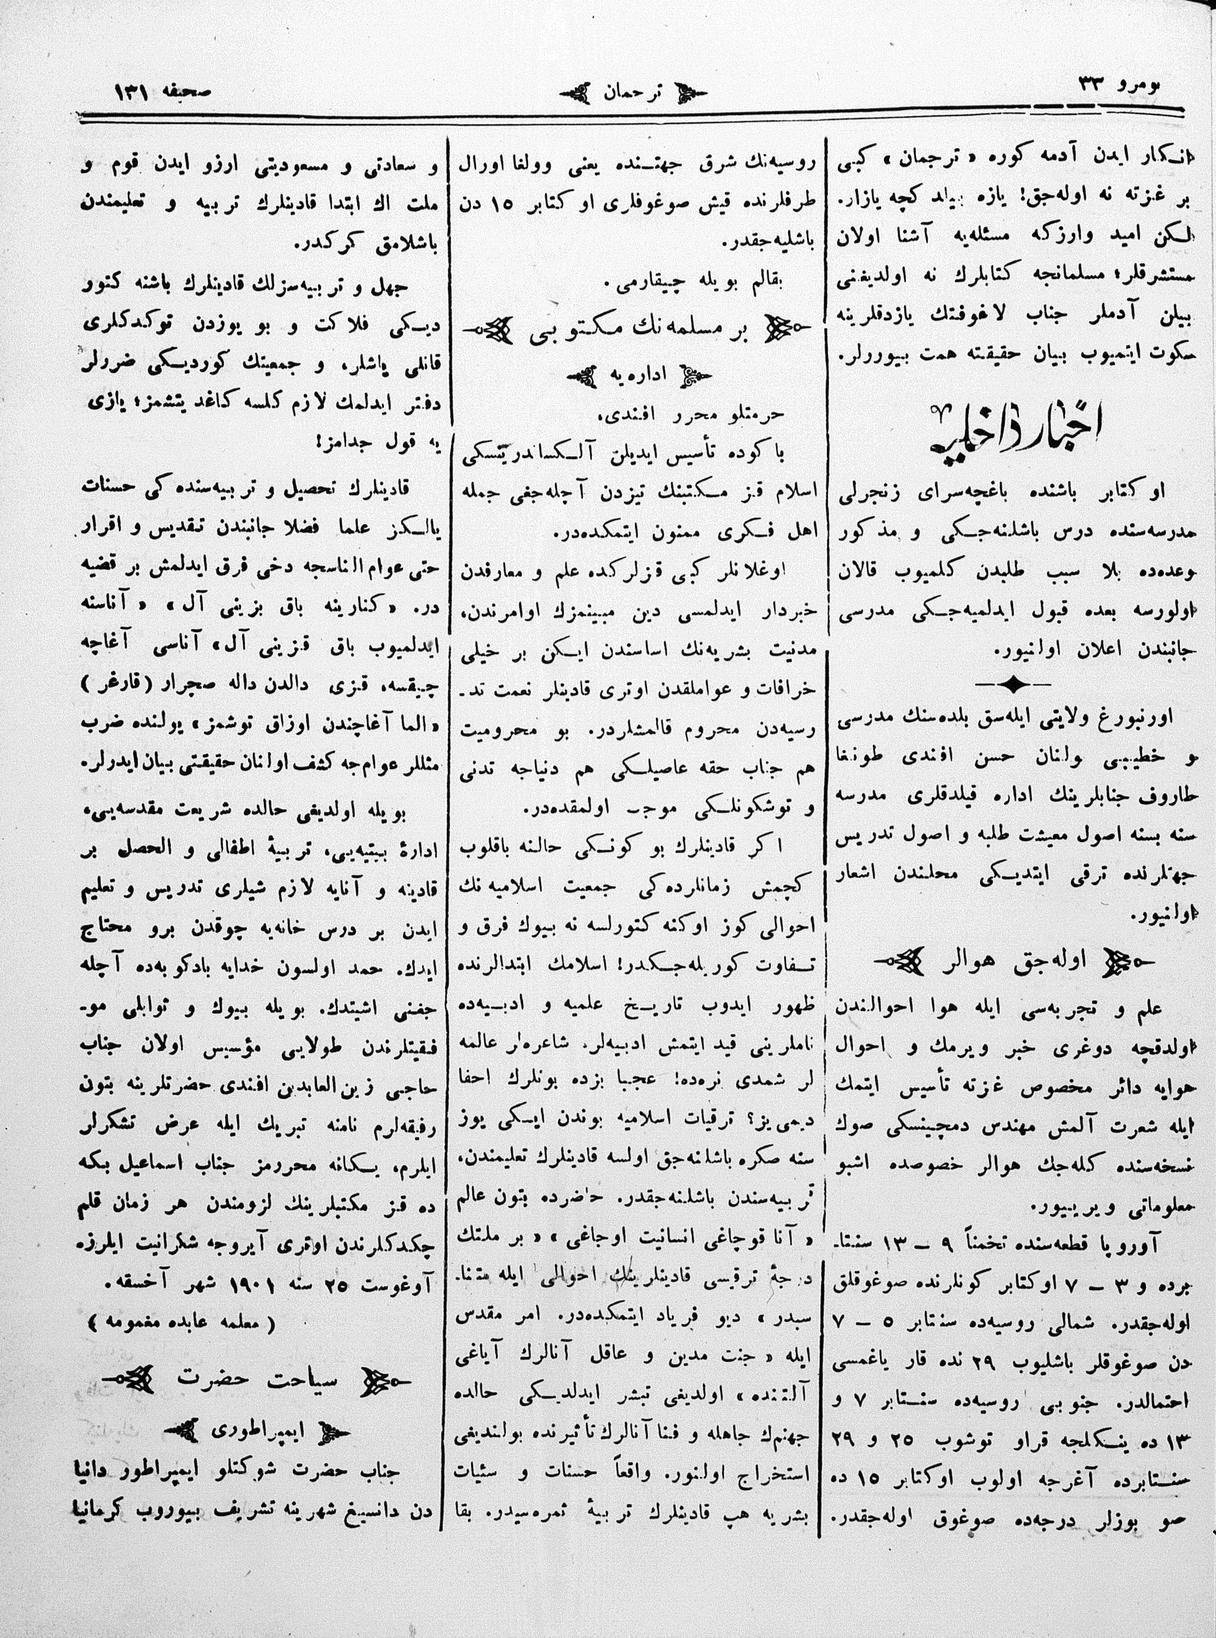 نومرو ٣٣
ترجمان
صحیفه ١٣١
انكار ایدن آدمه كوره «ترجمان» كبی
بر غزته نه اوله‌جق! یازه بیلد كچه یازار.
لكن امید وارزكه مسئله‌یه آشنا اولان
مستشرقلر؛ مسلمانجه كتابلرك نه اولدیغنی
بیلن آدملر جناب لاغوفتك یازدقلرینه
سكوت ایتمیوب بیان حقیقته همت بیوررلر.
اخبار داخلیه
اوكتابر باشنده باغچه‌سرای زنجرلی
مدرسه‌سنده درس باشلنه‌جكی و مذكور
وعده‌ده بلا سبب طلبدن كلمیوب قالان
اولورسه بعده قبول ایدلمیه‌جكی مدرسی
جانبندن اعلان اولنیور.
اورنبورغ ولایتی ایله‌سق بلده‌سنك مدرسی
و خطیبی ولنان حسن افندی طونغا
طاروف جنابلرینك اداره قیلدقلری مدرسه
سنه بسنه اصول معیشت طلبه و اصول تدریس
جهتلرنده ترقی ایتدیكی محلندن اشعار
اولنیور.
اوله‌جق هوالر
علم و تجربه‌سی ایله هوا احوالندن
اولدقچه دوغری خبر ویرمك و احوال
هوایه دائر مخصوص غزته تأسیس ایتمك
ایله شهرت آلمش مهندس دمچینسكی صوك
نسخه‌سنده كله‌جك هوالر خصوصده اشبو
معلوماتی ویرییور.
آوروپا قطعه‌سنده تخمنأ ٩ – ١٣ سنتا-
برده و ٣ – ٧ اوكتابر كونلرنده صوغوقلق
اوله‌جقدر. شمالی روسیه‌ده سنتابر ٥ – ٧
دن صوغوقلر باشلیوب ٢٩ نده قار یاغمسی
احتمالدر. جنوبی روسیه‌ده سنتابر ٧ و
١٣ ده ینكلجه قراو توشوب ٢٥ و ٢٩
سنتابرده آغرجه اولوب اوكتابر ١٥ ده
صو بوزلر درجه‌ده صوغوق اوله‌جقدر.
روسیه‌نك شرق جهتنده یعنی وولغا اورال
طرفلرنده قیش صوغوقلری اوكتابر ١٥ دن
باشلیه‌جقدر.
بقالم بویله چیقارمی.
بر مسلمه‌نك مكتوبی
اداره‌یه
حرمتلو محرر افندی.
باكوده تأسیس ایدیلن آلكساندریتسكی
اسلام قز مكتبنك تیزدن آچله‌جغی جمله
اهل فكری ممنون ایتمكده‌در.
اوغلانلر كبی قزلركده علم و معارفدن
خبردار ایدلمسی دین مبینمزك اوامرندن،
مدنیت بشریه‌نك اساسندن ایكن بر خیلی
خرافات و عواملقدن اوتری قادینلر نعمت تد-
رسیه‌دن محروم قالمشلردر. بو محرومیت
هم جناب حقه عاصیلكی هم دنیاجه تدنی
و توشكونلكی موجب اولمقده‌در.
اكر قادینلرك بو كونكی حالنه باقلوب
كچمش زمانلرده‌كی جمعیت اسلامیه‌نك
احوالی كوز اوكنه كتورلسه نه بیوك فرق و
تفاوت كوریله‌جكدر! اسلامك ابتدالرنده
ظهور ایدوب تاریخ علمیه و ادبیه‌ده
ناملرینی قید ایتمش ادیبه‌لر، شاعره‌لر عالمه
لر شمدی نره‌ده! عجبا بزده بونلرك احفا
دیمی‌یز؟ ترقیات اسلامیه بوندن ایكی یوز
سنه صكره باشلنه‌جق اولسه قادینلرك تعلیمندن،
تربیه‌سندن باشلنه‌جقدر. حاضرده بتون عالم
«آنا قوجاغی انسانیت اوجاغی» «بر ملتك
درجهٔ ترقیسی قادینلرینك احوالی ایله متنا-
سبدر» دیو فریاد ایتمكده‌در. امر مقدس
ایله «جنت مدین و عاقل آنالرك آیاغی
آلتنده» اولدیغی تبشر ایدلدیكی حالده
جهنم‌ك جاهله و فنا آنالرك تأثیرنده بولندیغی
استخراج اولنور. واقعاً حسنات و سئیات
بشریه هپ قادینلرك تربیهٔ ثمره‌سیدر. بقا
و سعادتی و مسعودیتی ارزو ایدن قوم و
ملت اك ابتدا قادینلرك تربیه و تعلیمندن
باشلامق كركدر.
جهل و تربیه‌سزلك قادینلرك باشنه كتور
دیكی فلاكت و بو یوزدن توكدكلری
قانلی یاشلر، و جمعیتك كوردیكی ضررلر
دفتر ایدلمك لازم كلسه كاغد یتشمز؛ یازی
یه قول جدامز!
قادینلرك تحصیل و تربیه‌سنده‌كی حسنات
یالكز علما فضلا جانبندن تقدیس و اقرار
حتی عوام الناسجه دخی فرق ایدلمش بر قضیه
در. «كنارینه باق بزینی آل» «آناسنه
ایدلمیوب باق قزینی آل» آناسی آغاچه
چیقسه، قزی دالدن داله صچرار (قارغر)
«الما آغاچندن اوزاق توشمز» یولنده ضرب
مثللر عوام‌جه كشف اولنان حقیقتی بیان ایدرلر.
بویله اولدیغی حالده شریعت مقدسه‌یی،
ادارهٔ بیتیه‌یی، تربیهٔ اطفالی و الحصل بر
قادینه و آنایه لازم شیلری تدریس و تعلیم
ایدن بر درس خانه‌یه چوقدن برو محتاج
ایدك. حمد اولسون خدایه بادكوبه‌ده آچله
جغنی اشیتدك. بویله بیوك و ثوابلی مو-
فقیتلرندن طولایی مؤسس اولان جناب
حاجی زین‌العابدین افندی حضرتلرینه بتون
رفیقه‌لرم نامنه تبریك ایله عرض تشكرلر
ایلرم. یكانه محررمز جناب اسماعیل بكه
ده قز مكتبلرینك لزومندن هر زمان قلم
چكدكلرندن اوتری آیروجه شكرانیت ایلرزه
آوغوست ٢٥ سنه ١٩٠١ شهر آخسقه.
(معلمه عابده مغمومه)
سیاحت حضرت
ایمپراطوری
جناب حضرت شوكتلو ایمپراطور دانیا
دن دانسیغ شهرینه تشریف بیوروب كرمانیا